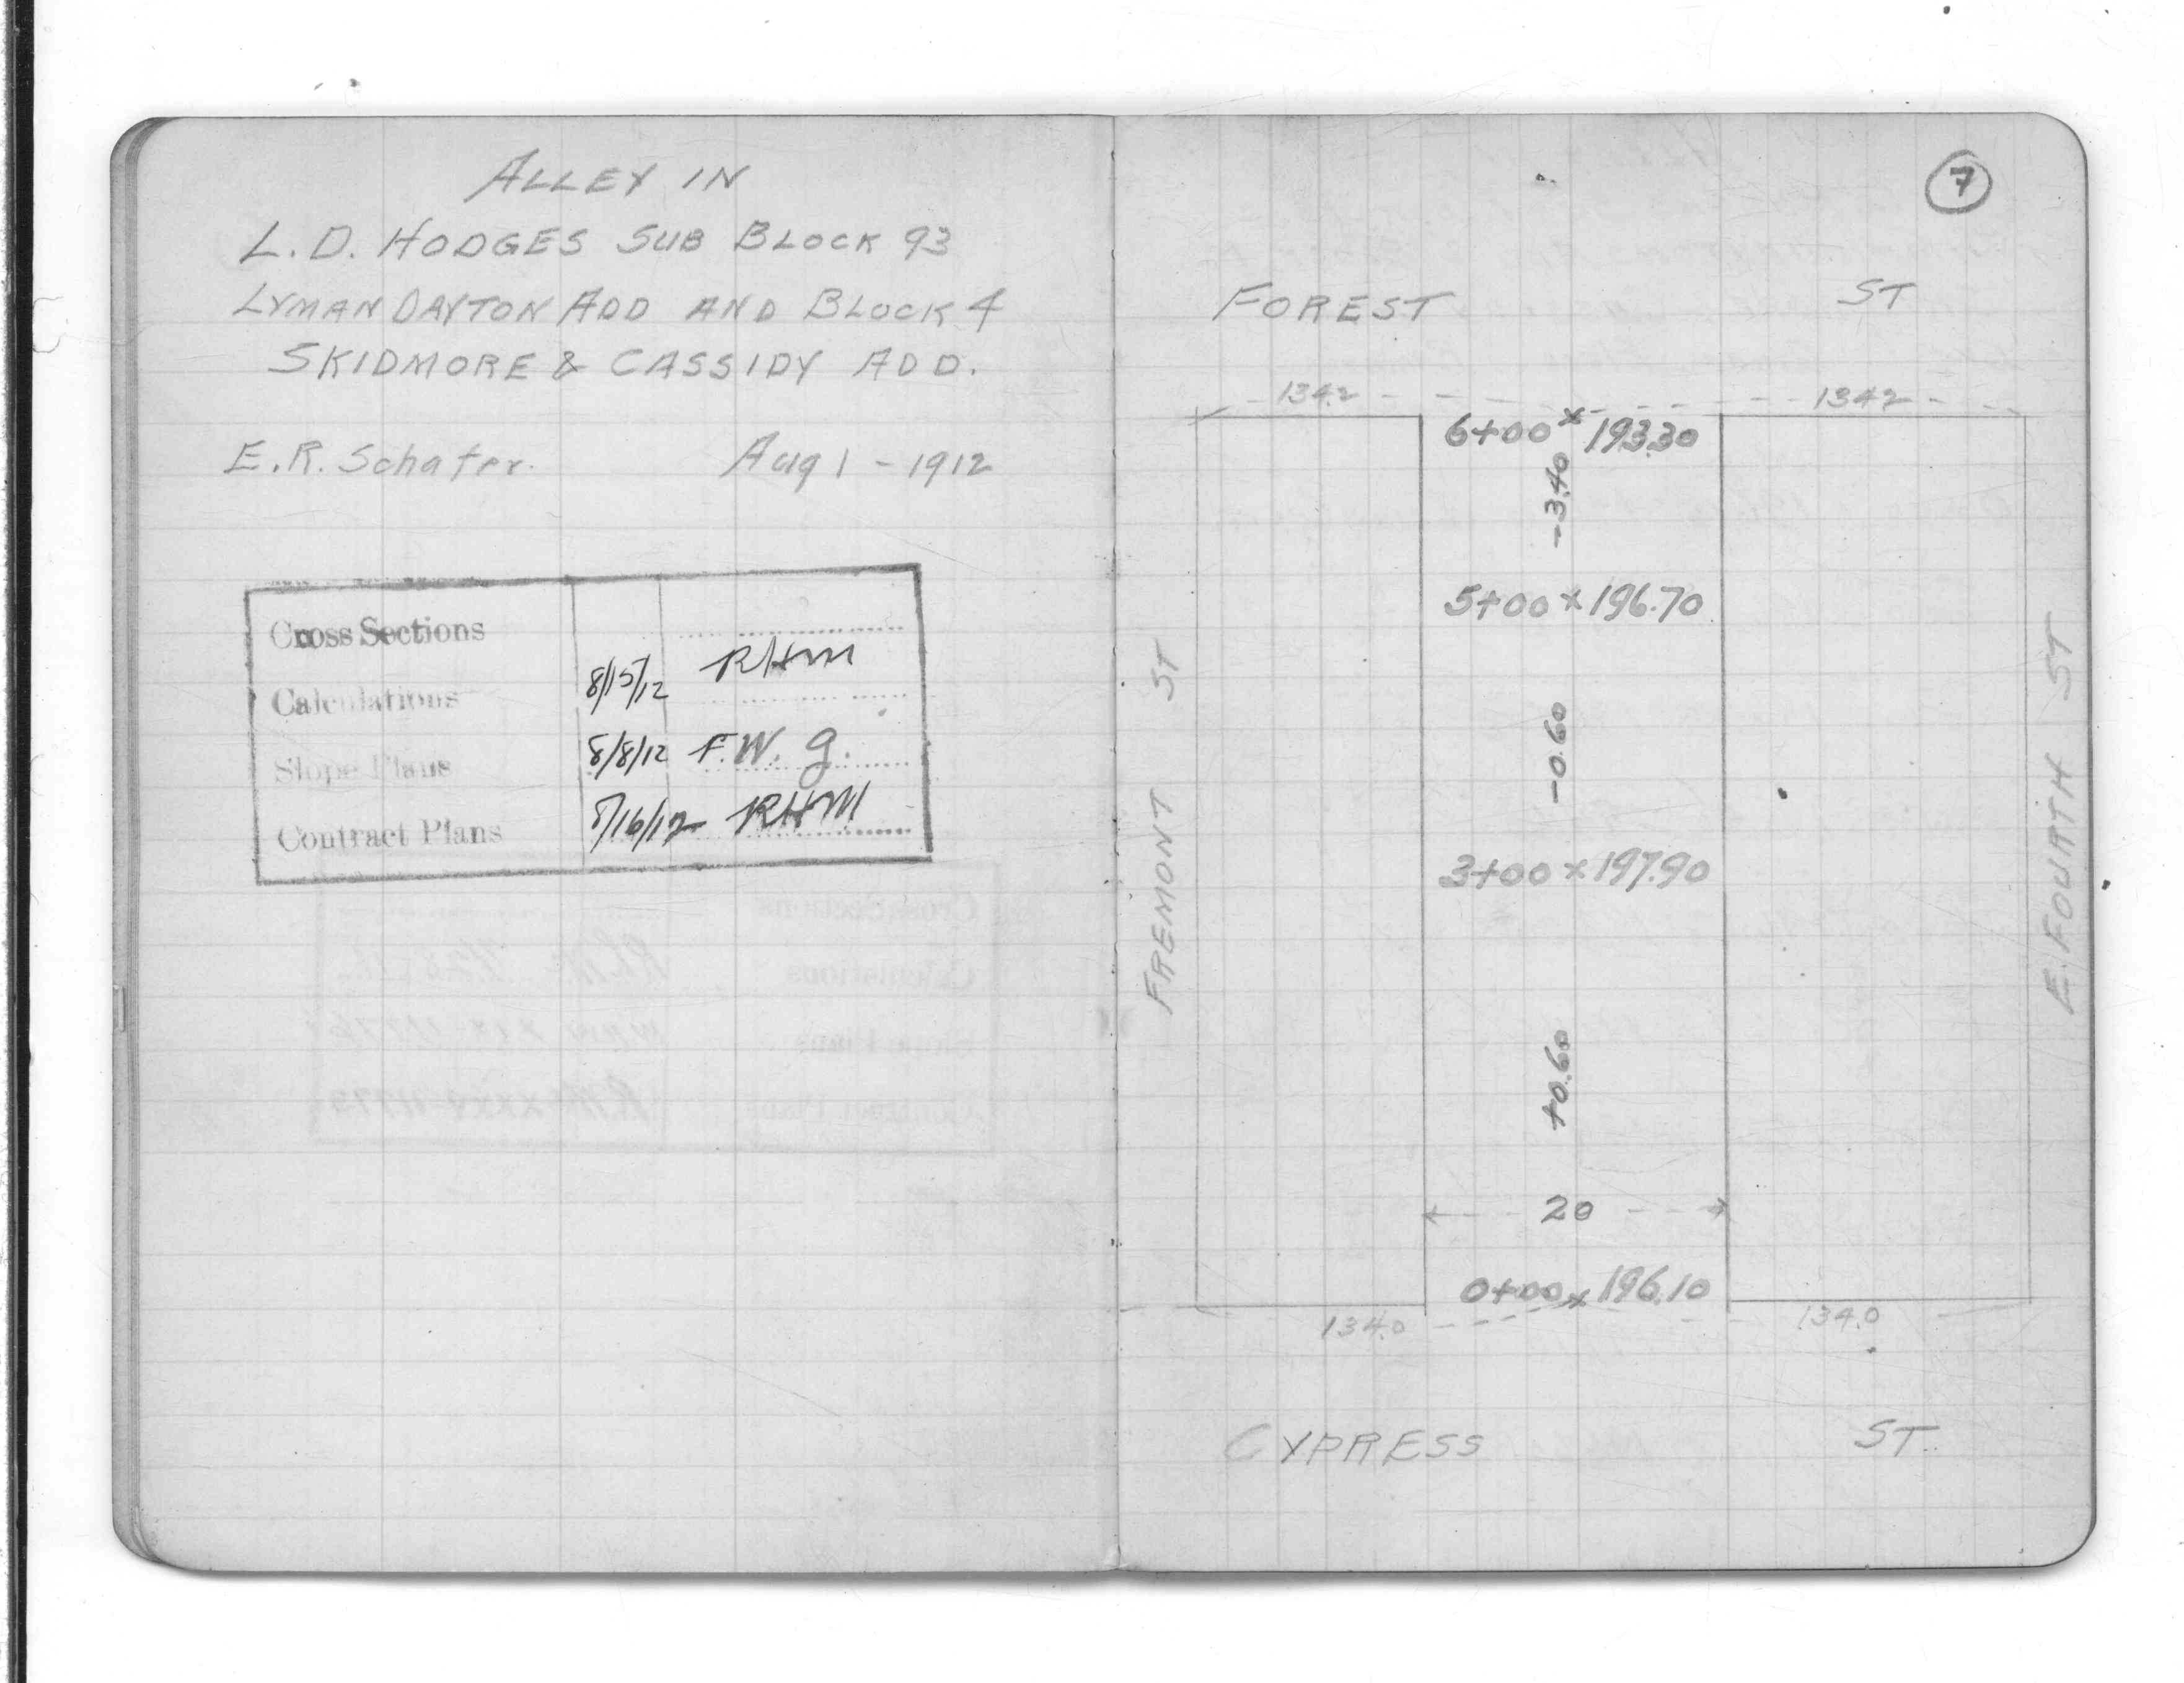 ALLEY IN
L.D. HODGES SUB BLOCK 93
LYMAN DAYTON ADD AND BLOCK 4
SKIDMORE & CASSIDY ADD.
E.R. Schafer. Aug 1 - 1912
Cross Sections
Calculations 8/15/12 RHM
Slope Plans 8/8/12 F.W. g.
Contract Plans 8/16/12 RHM
7
FOREST ST
134.2 134.2
6+00 x 193.30
-3.40
5+00 x 196.70
FREMONT ST
-0.60
E. FOURTH ST
3+00 x 197.90
+0.60
20
0+00 x 196.10
134.0 134.0
CYPRESS ST.